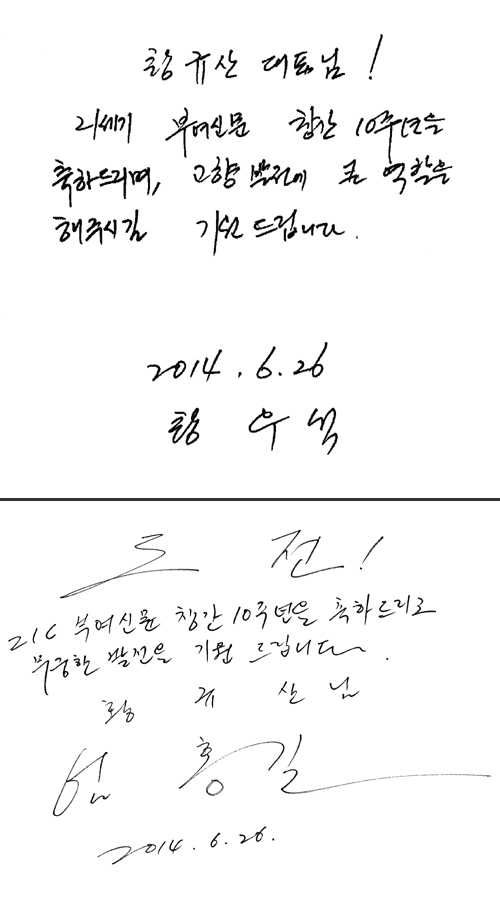 황규산 대표님!
21세기 부여신문 창간 10주년을
축하드리며, 고향 발전에 큰 역할을
해주시길 기원드립니다.
2014.6.26
황우석
도전!
21C 부여신문 창간 10주년을 축하드리고
무궁한 발전을 기원 드립니다.
황 규 산 님
엄홍길
2014.6.26.